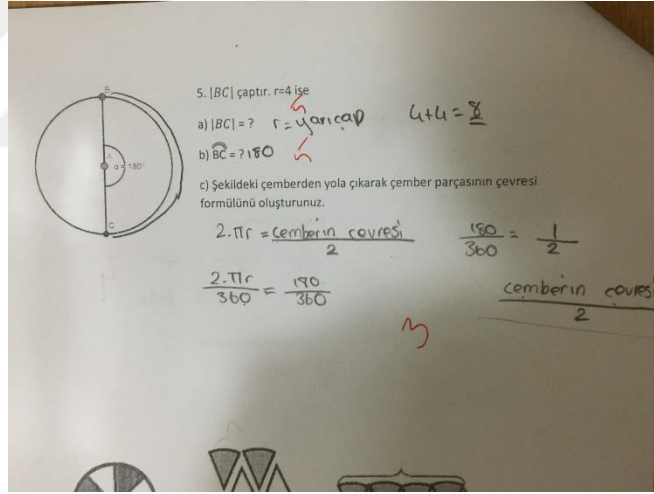 B
5. |BC| çaptır. r=4 ise
a) |BC| = ? r = yarıçap 4+4 = 8
α = 180°
b) BC = ? 180
C
c) Şekildeki çemberden yola çıkarak çember parçasının çevresi
formülünü oluşturunuz.
2.πr = çemberin çevresi / 2 180/360 = 1/2
2.πr/360 = 180/360
çemberin çevresi / 2